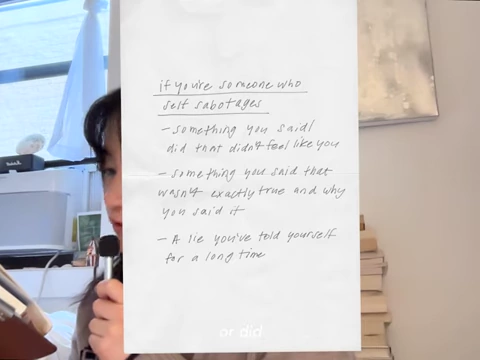 if you're someone who
self sabotages
- something you said/
did that didn't feel like you
- something you said that
wasn't exactly true and why
you said it
- A lie you've told yourself
for a long time
or did